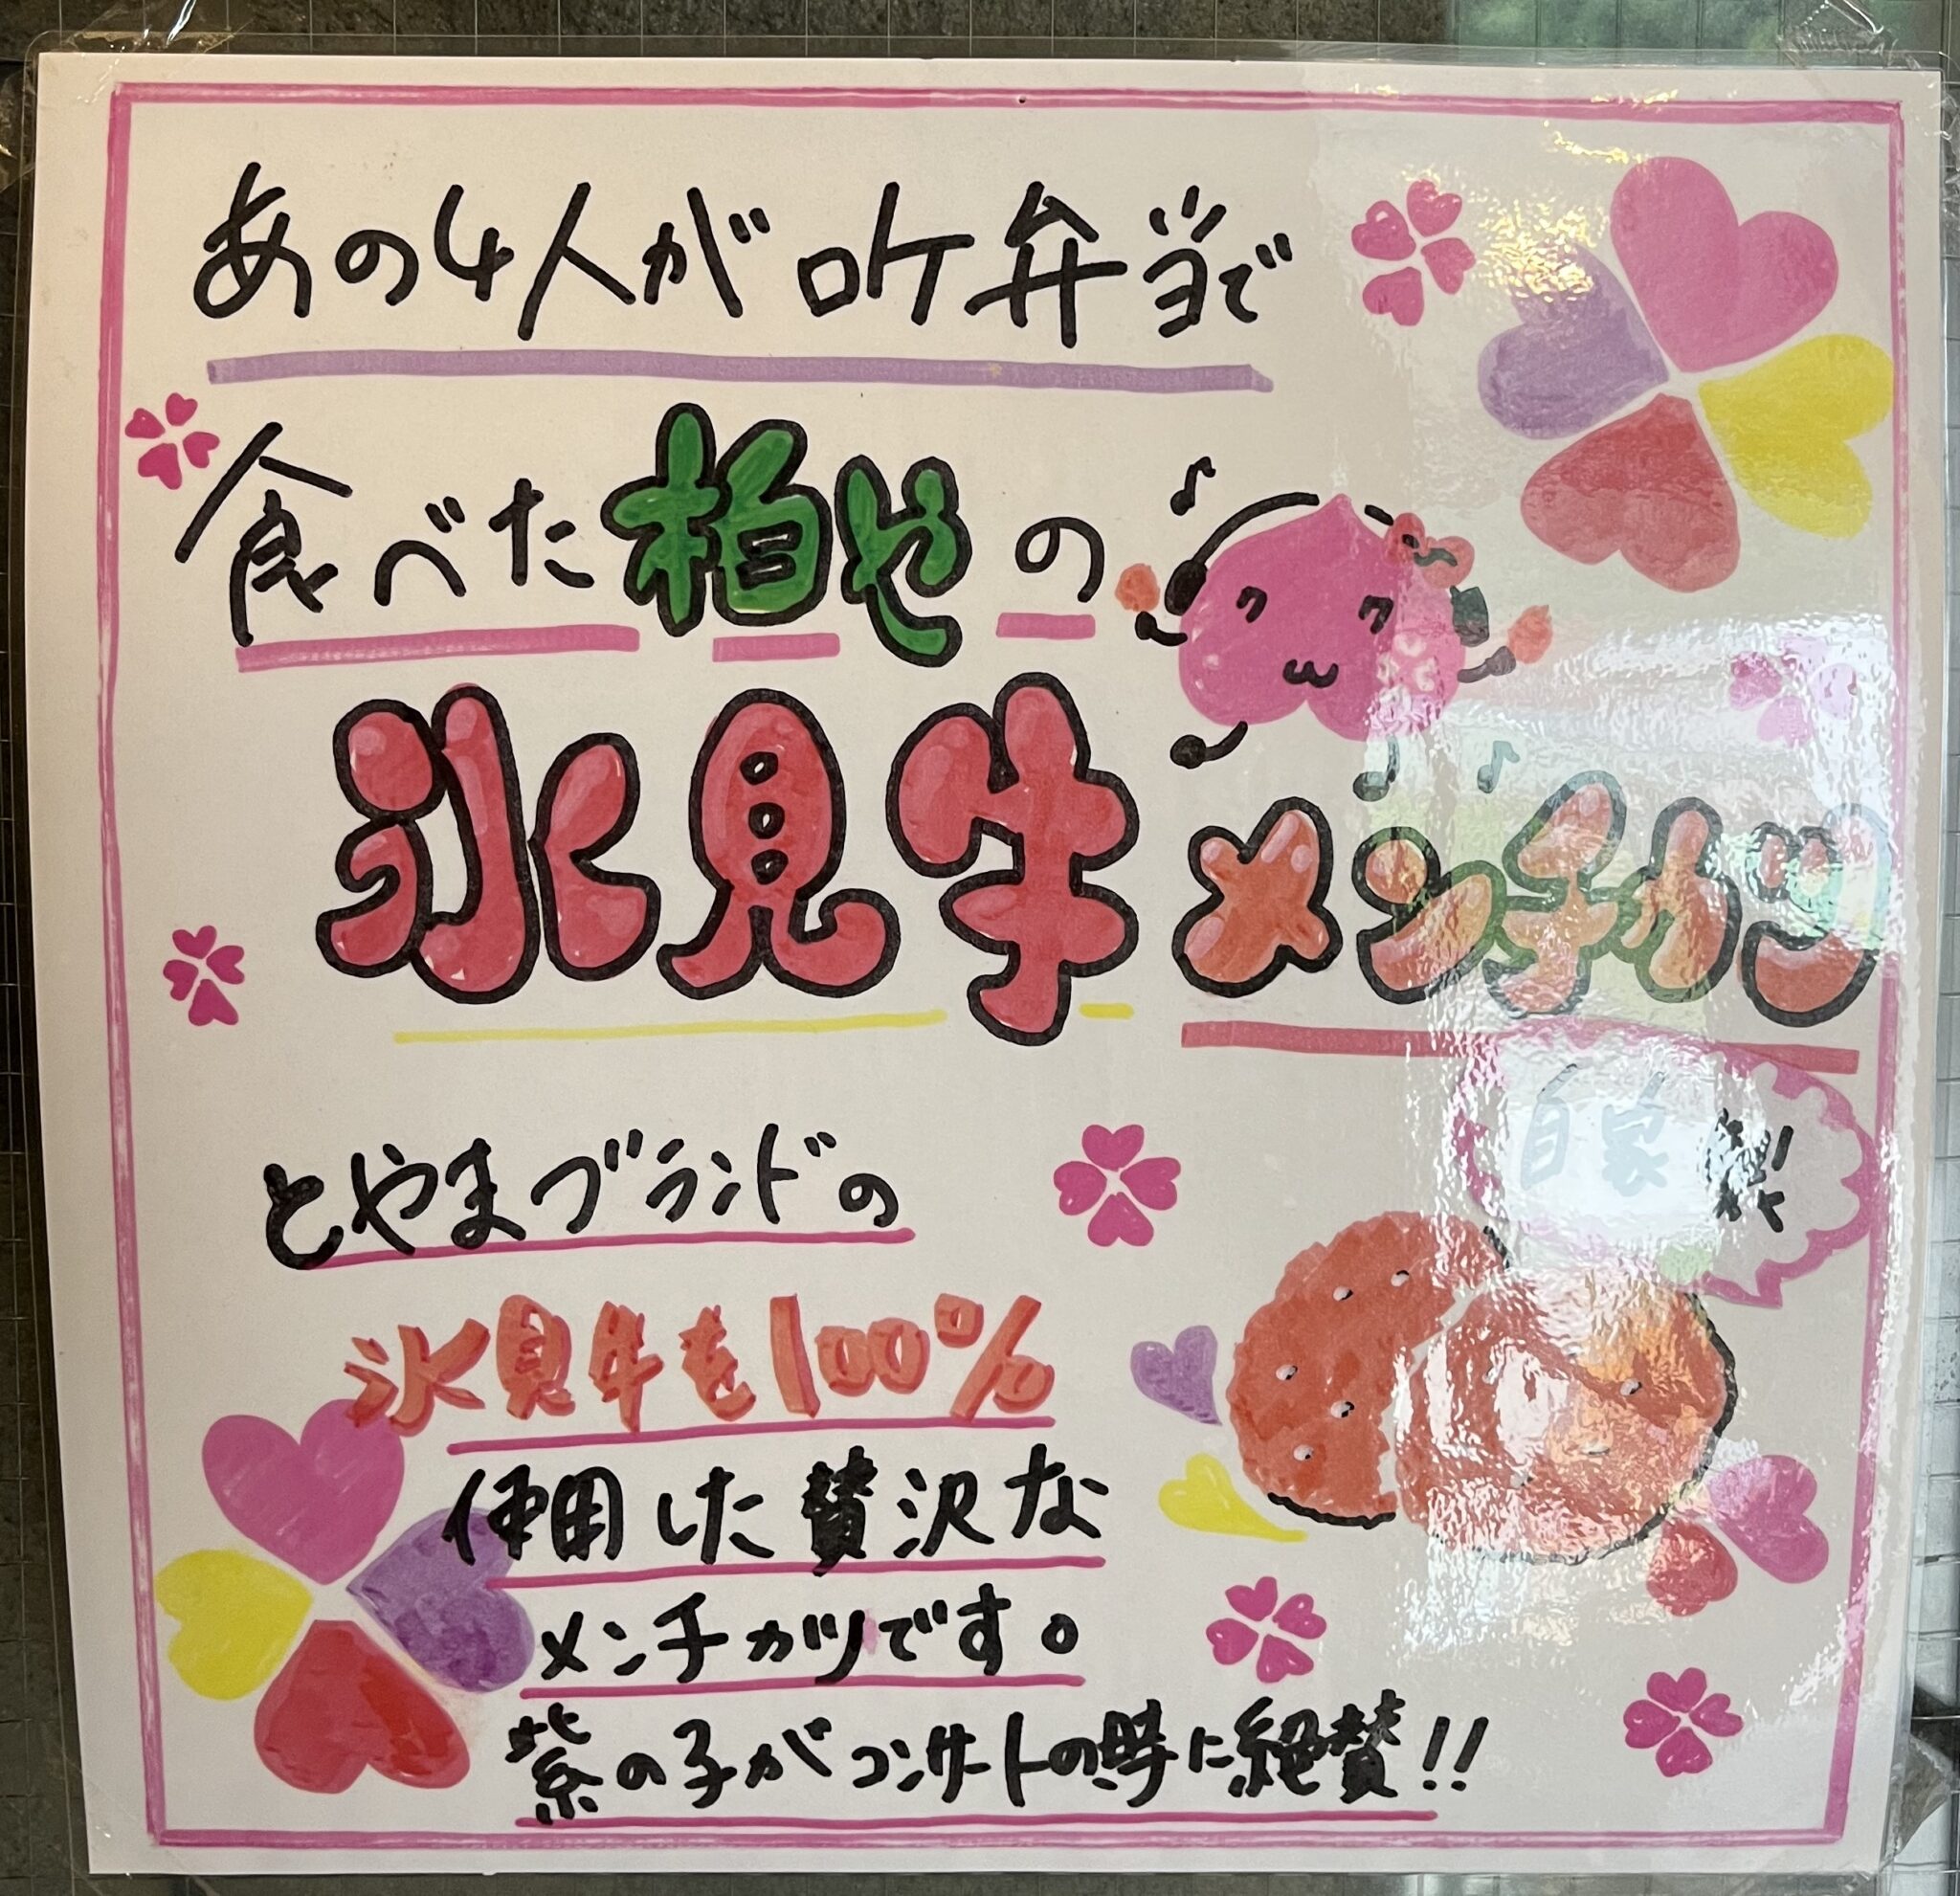 あの4人がロケ弁当で
食べた柏やの
氷見牛メンチカツ
自家製
とやまブランドの
氷見牛を100%
使用した贅沢な
メンチカツです。
紫の子がコンサートの時に絶賛!!